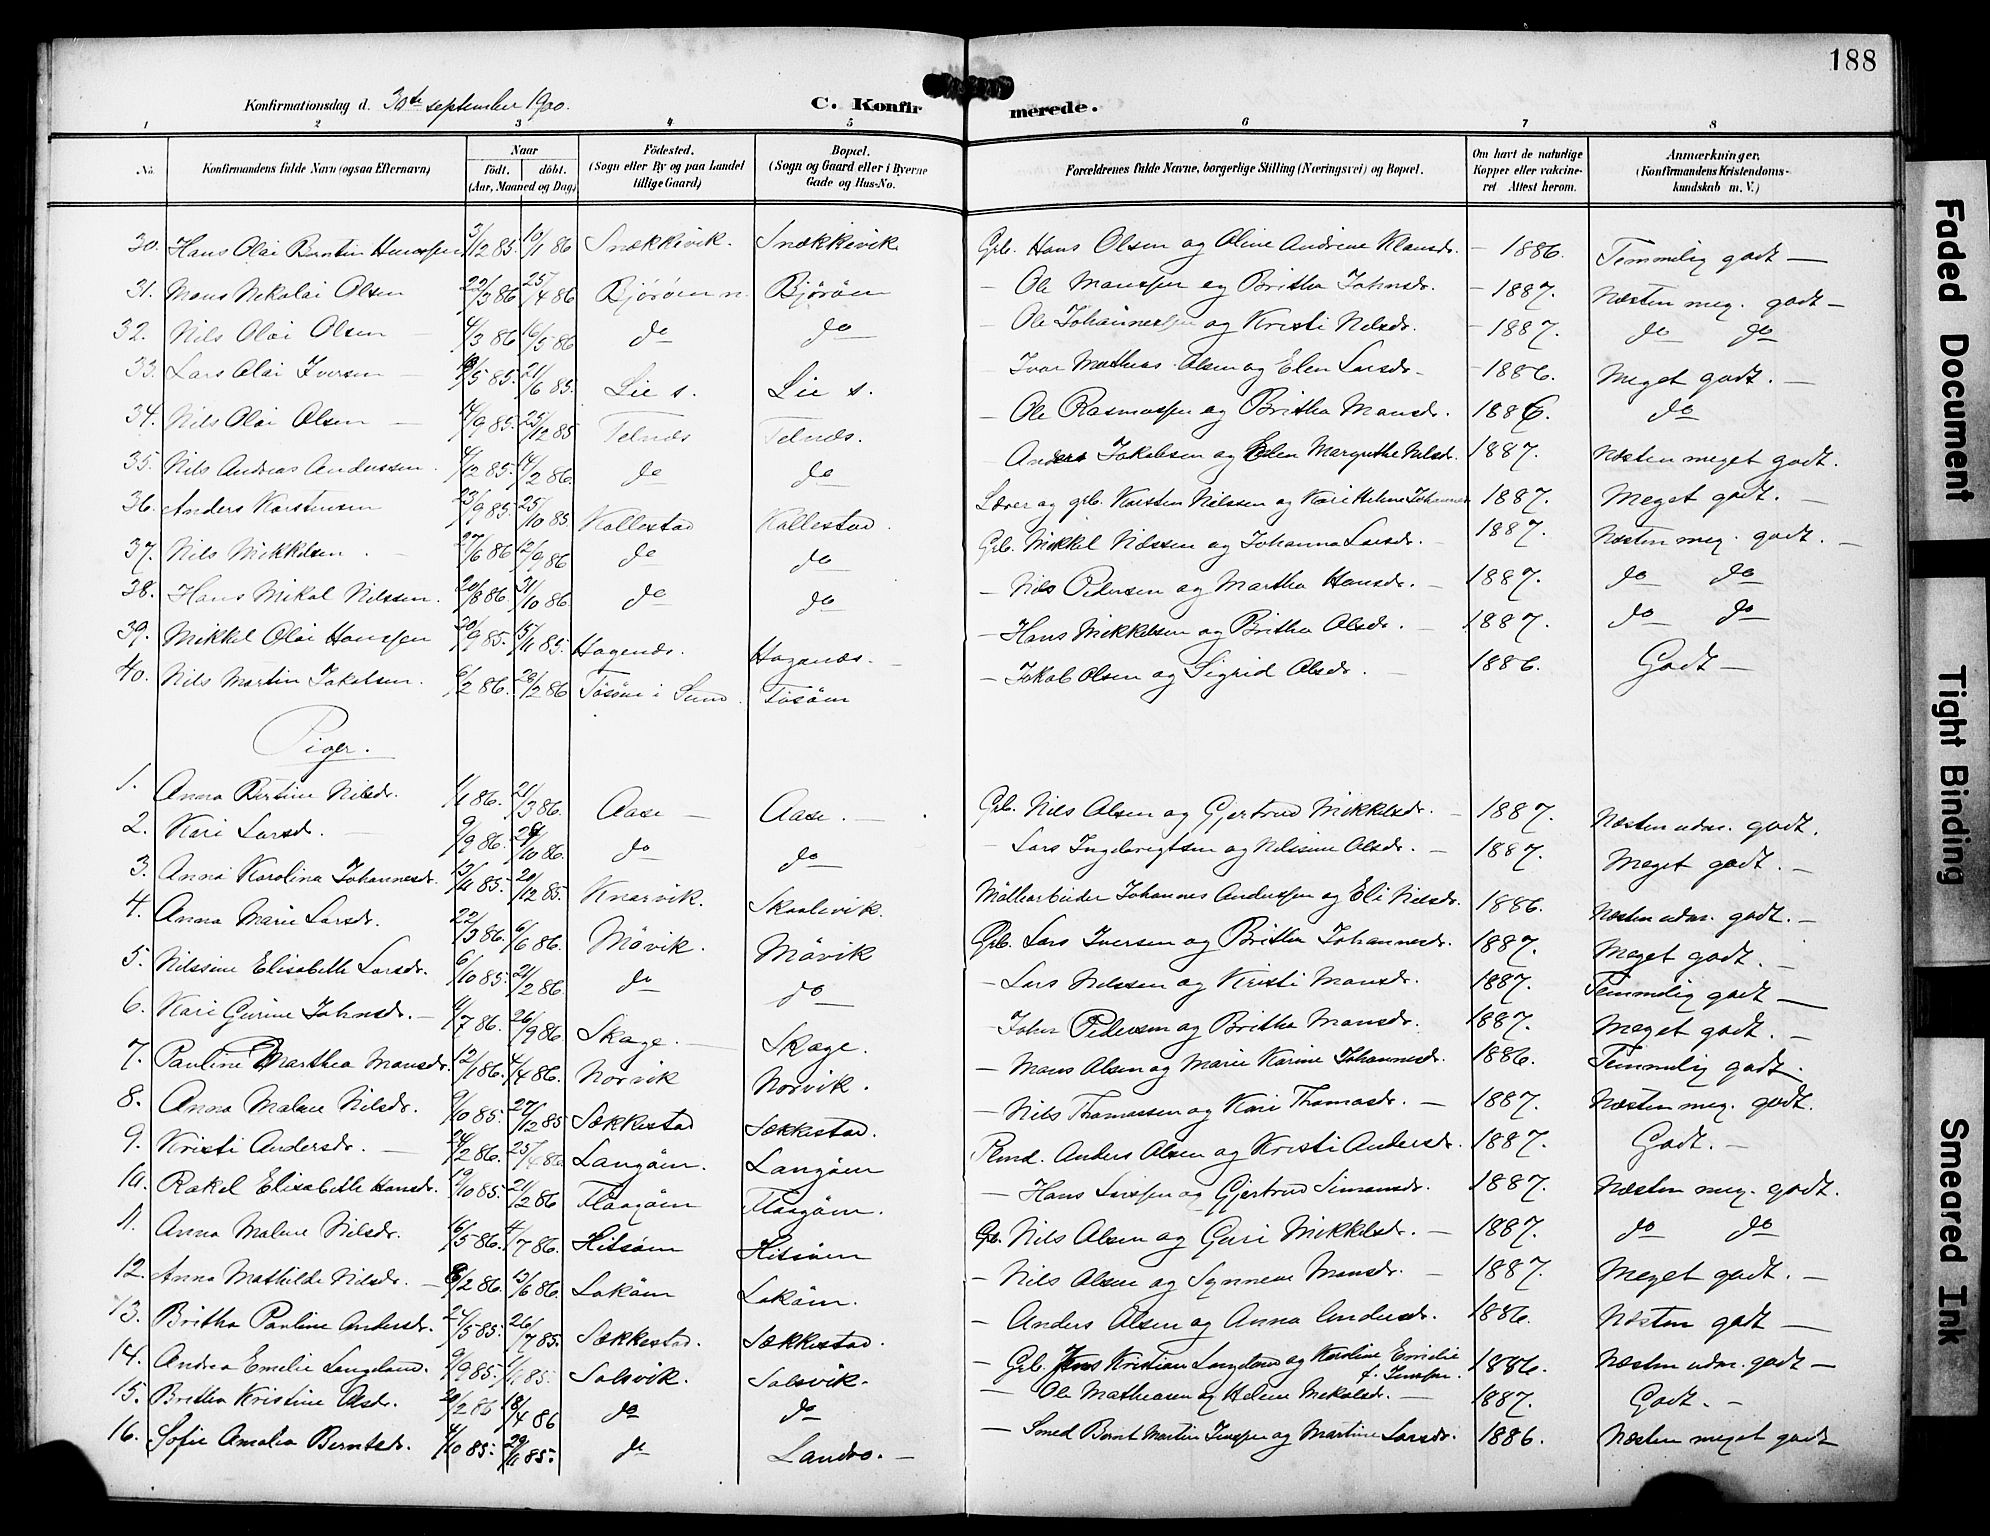 188
Konfirmationsdag d. 30te september 1900.
C. Konfirmerede.
1 2 3 4 5 6 7 8
No. Konfirmandens fulde Navn (ogsaa Efternavn) Naar født. døbt. (Aar, Maaned og Dag) Fødested. (Sogn eller By og paa Landet tillige Gaard) Bopæl. (Sogn og Gaard eller i Byerne Gade og Hus-No.) Forældrenes fulde Navne, borgerlige Stilling (Næringsvei) og Bopæl. Om havt de naturlige Kopper eller vakcineret Attest herom. Anmærkninger. (Konfirmandens Kristendomskundskab m. V.)
30. Hans Olai Berntin Hanssen 3/12 85. 10/1 86 Snækkevik. Snækkevik Grb. Hans Olsen og Oline Andrine Klausdr. - 1886. Temmelig godt -
31. Mons Nikolai Olsen 22/3 86 25/4 86 Bjørøen n. Bjørøen - Ole Monssen og Britha Johnsdr. - 1887. Næsten meg. godt -
32. Nils Olai Olsen - 4/3 86 16/5 86 do do - Ole Johannessen og Kristi Nilsdr. - 1887. do do
33. Lars Olai Iversen - /5 85. 21/6 85. Lie s. Lie s. - Ivar Mathias Olsen og Elen Larsdr. - 1886. Meget godt. -
34. Nils Olai Olsen - 14/9 85. 25/12 85 Telnæs Telnæs. - Ole Rasmussen og Britha Monsdr. 1886. do
35. Nils Andreas Anderssen. 4/12 85. 14/2 86 do do - Anders Jakobsen og Elen Margrethe Nilsdr. 1887. Næsten meget godt.
36. Anders Karstensen 23/9 85. 25/10 85. Kallestad Kallestad. Lærer og grb. Karsten Nilssen og Kari Helene Johannes 1887. Meget godt. -
37. Nils Mikkelsen. - 27/6 86 12/9 86 do do Grb. Mikkel Nilssen og Johanna Larsdr. - 1887. Næsten meg. godt. -
38. Hans Mikal Nilssen. 20/8 86. 31/10 86 do do - Nils Pedersen og Martha Hansdr. - 1887. do do
39. Mikkel Olai Hanssen 20/9 85. 15/11 85. Hagenæs. Hagenæs. - - Hans Mikkelsen og Britha Olsdr. - 1887. do do
40. Nils Martin Jakobsen. 6/2 86. 28/2 86 Tøsøen i Sund. Tøsøen - Jakob Olsen og Sigrid Olsdr. - 1886. Godt -
Piger.
1. Anna Bertine Nilsdr. 1/1 86. 21/3 86. Aase - Aase. - Grb. Nils Olsen og Gjertrud Mikkelsdr. - 1887. Næsten udm. godt.
2. Kari Larsdr. - 9/9 86. 24/10 86. do do - Lars Ingebrigtsen og Nilssine Olsdr. - 1887. Meget godt. -
3. Anna Karolina Johannesdr. 13/11 85. 20/12 85. Knarvik. Skaalevik. Møllearbeider Johannes Anderssen og Eli Nilsdr. 1886. Næsten udm. godt. -
4. Anna Marie Larsdr. 22/3 86. 6/6 86. Møvik. Møvik Grb. Lars Iversen og Britha Johannesdr. 1887. Meget godt. -
5. Nilssine Elisabeth Larsdr. 6/10 85. 21/2 86. do do - Lars Nilssen og Kristi Monsdr. 1887. Temmelig godt -
6. Kari Gurine Johnsdr. - 4/7 86. 26/9 86. Skage. - Skage. - John Pedersen og Britha Monsdr. 1887. Meget godt. -
7. Pauline Marthea Monsdr. 12/1 86. 4/4 86. Norvik Norvik. - Mons Olsen og Marie Karine Johannesdr. 1886. Temmelig godt.
8. Anna Malene Nilsdr. 9/10 85. 27/12 85 Sækkestad Sækkestad. - Nils Thomassen og Kari Thomasdr. - 1887. Næsten meg. godt.
9. Kristi Andersdr. - 24/2 86. 25/4 86. Langøen. Langøen Plmd. Anders Olsen og Kristi Andersdr. 1887. Godt. -
10. Rakel Elisabeth Hansdr. 19/10 85. 21/2 86 Flaagøen Flaagøen. - Hans Larssen og Gjertrud Simonsdr. 1887. Næsten meg. godt.
11. Anna Malene Nilsdr. 16/5 86. 4/7 86. Hitsøen Hitsøen Gb. Nils Olsen og Guri Mikkelsdr. - 1887. do do
12. Anna Mathilde Nilsdr. - 8/2 86. 13/6 86. Lokøen Lokøen. - Nils Olsen og Synneve Monsdr. - 1887. Meget godt. -
13. Britha Pauline Andersdr. 27/5 85. 26/7 85. Sækkestad. Sækkestad. - Anders Olsen og Anna Andersdr. 1886. Næsten godt -
14. Andrea Emelie Langeland. 9/9 85. /11 85. Solsvik. Solsvik. - Grb. Jens Kristian Langeland og Karoline Emilie f. Jenssen. 1886. Næsten udm. godt -
15. Britha Kristine Olsdr. 20/2 86 18/4 86 do do - Ole Mathiasen og Helene Nikolsdr. - 1887. Godt. -
16. Sofie Amalia Berntsdr. 4/10 85. 29/11 85. do Landro. - - Smed Bernt Martin Jenssen og Martine Larsdr. 1886. Næsten meget godt
Faded Document
Tight Binding
Smeared Ink